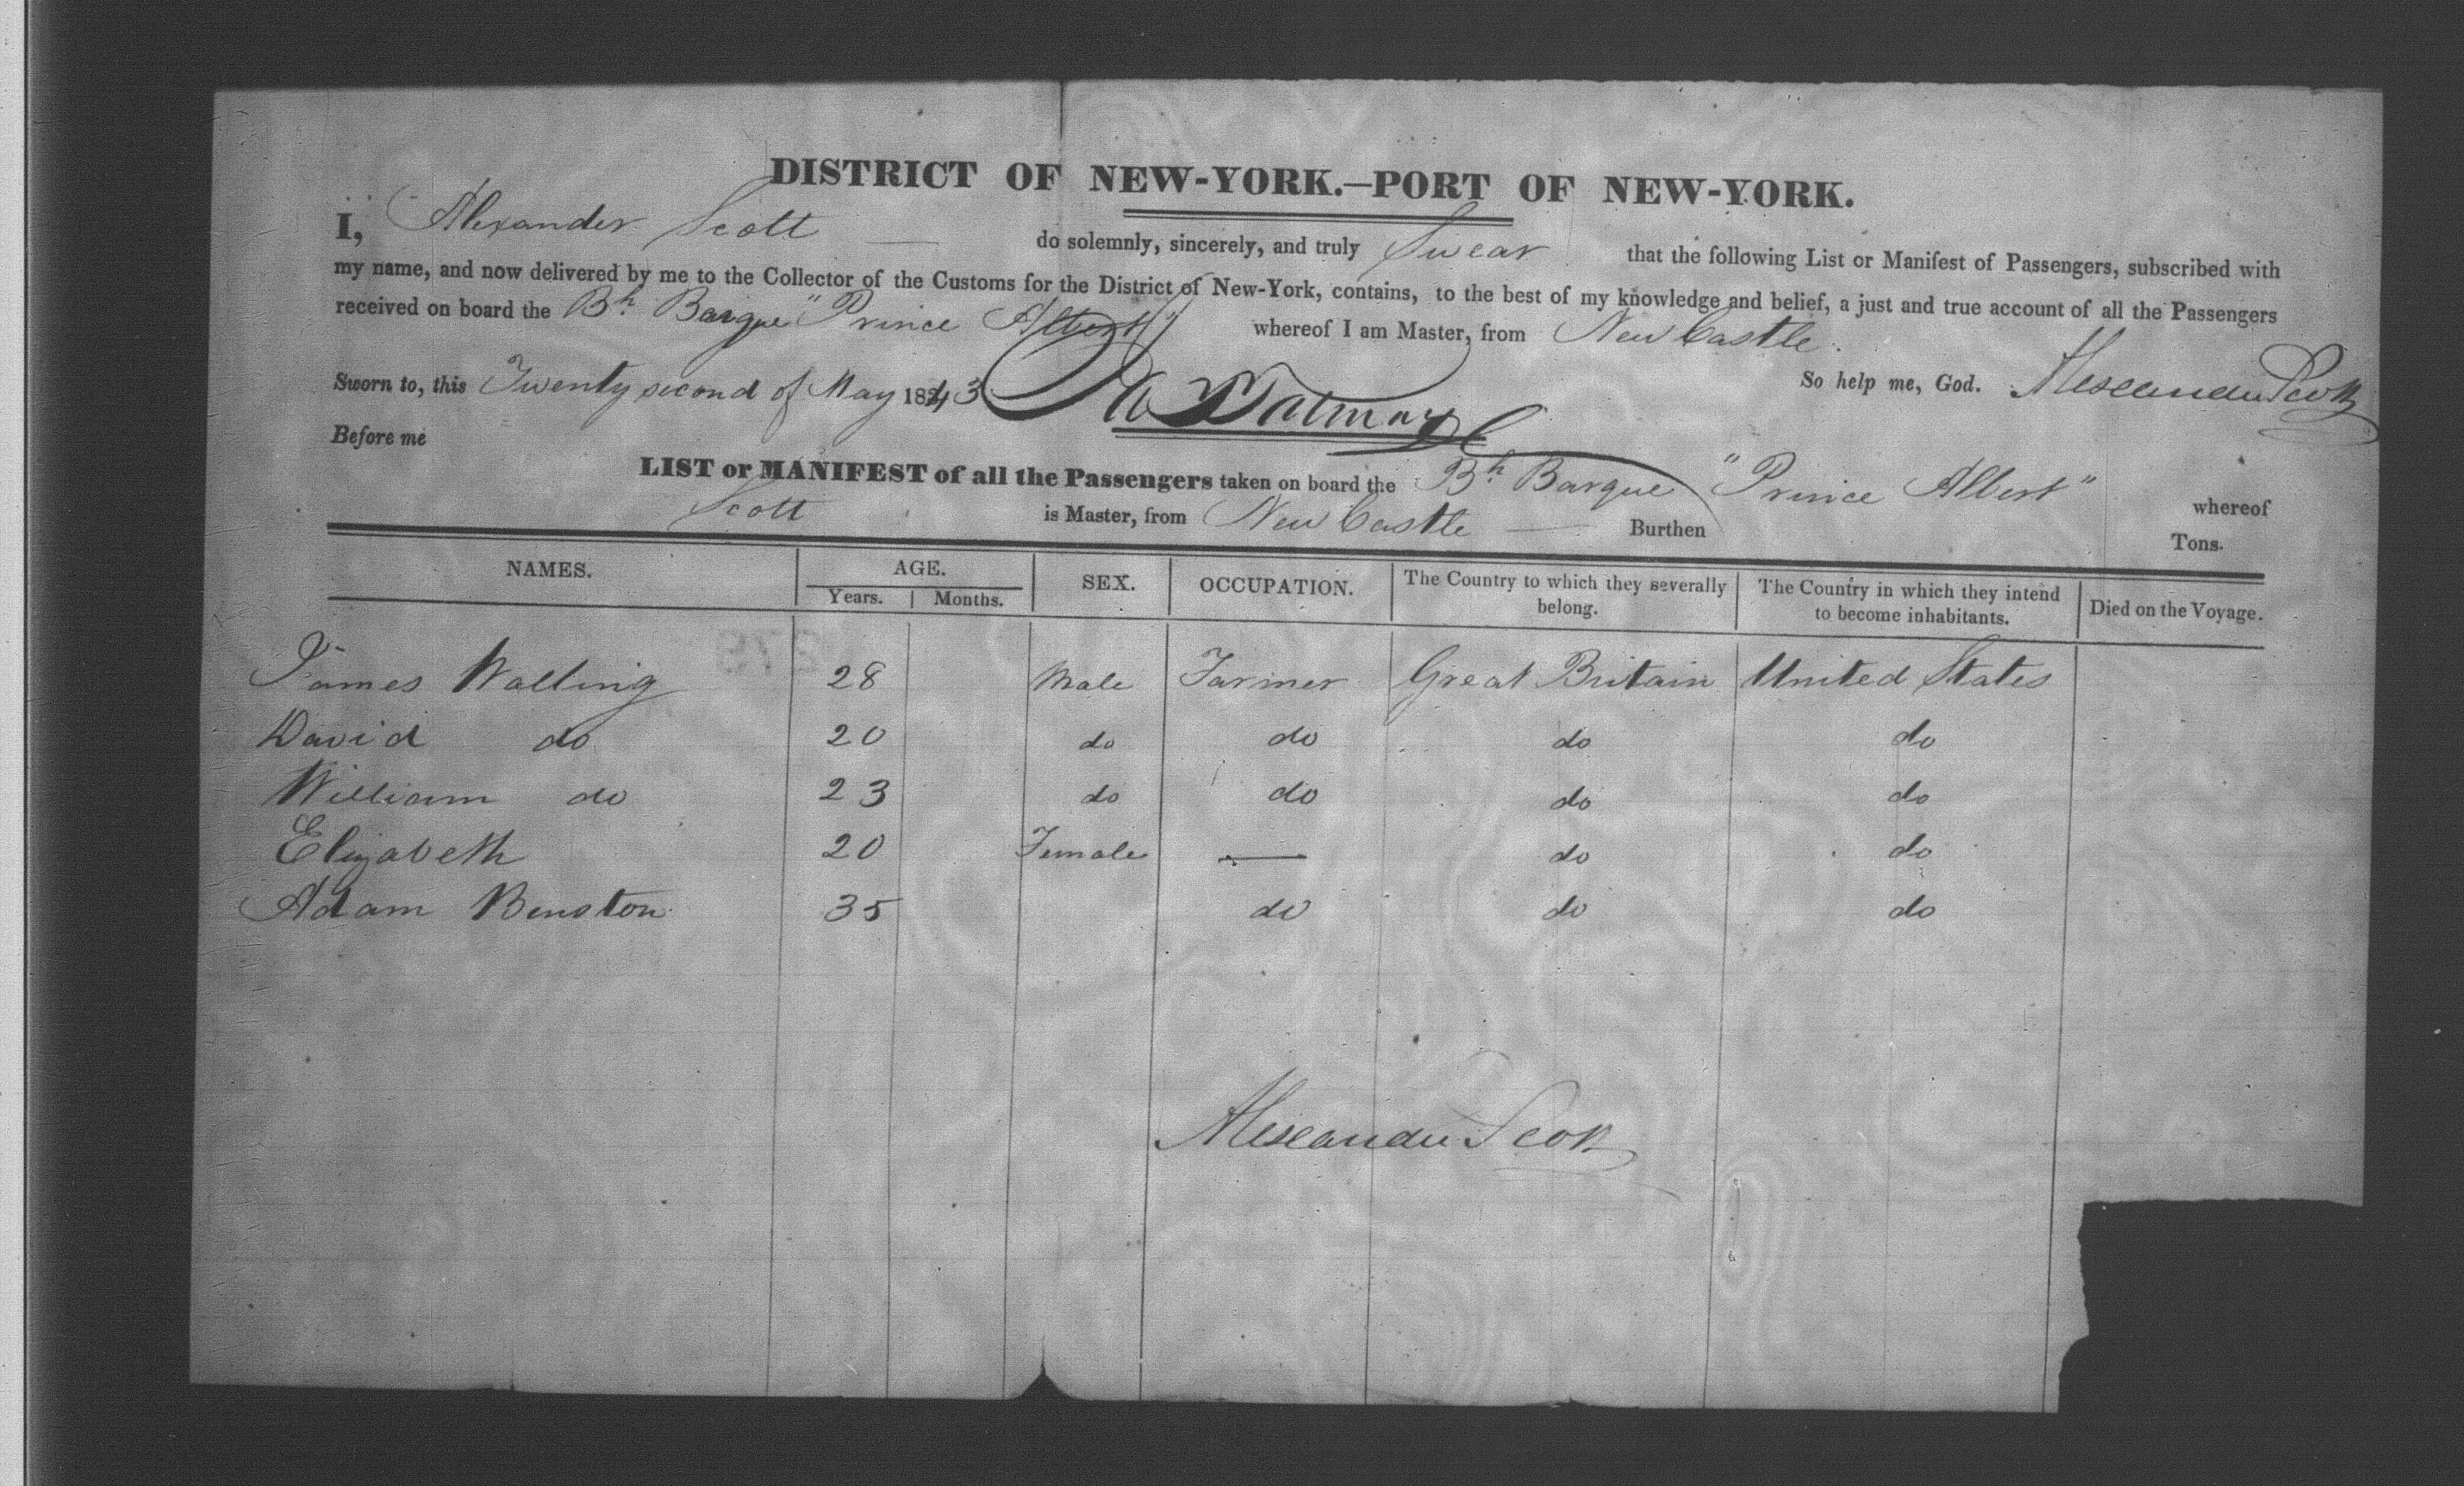 DISTRICT OF NEW-YORK.—PORT OF NEW-YORK.
I, Alexander Scott — do solemnly, sincerely, and truly Swear that the following List or Manifest of Passengers, subscribed with
my name, and now delivered by me to the Collector of the Customs for the District of New-York, contains, to the best of my knowledge and belief, a just and true account of all the Passengers
received on board the Bh Barque "Prince Albert" whereof I am Master, from New Castle.
Sworn to, this Twenty second of May 1843 So help me, God. Alexander Scott
Before me
LIST or MANIFEST of all the Passengers taken on board the Bh Barque "Prince Albert" whereof
Scott is Master, from New Castle — Burthen Tons.
NAMES. AGE. SEX. OCCUPATION. The Country to which they severally belong. The Country in which they intend to become inhabitants. Died on the Voyage.
Years. Months.
James Walling 28 Male Farmer Great Britain United States
David do 20 do do do do
William do 23 do do do do
Elizabeth 20 Female — do do
Adam Benston 35 do do do
Alexander Scott